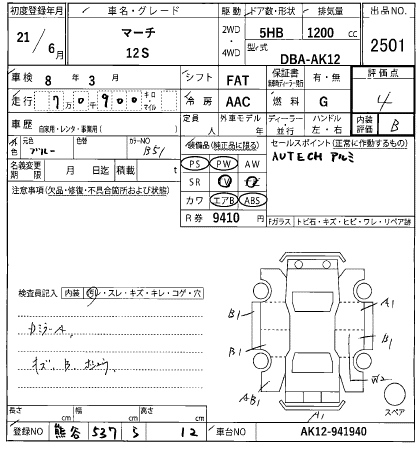 初度登録年月 車名・グレード 駆動 ドア数・形状 排気量 出品NO
21/6月 マーチ 12S 2WD・4WD 5HB 1200 cc 2501
型式 DBA-AK12
車検 8年3月 シフト FAT 保証書 有・無 評価点
走行 7万0千900 キロ・マイル 冷房 AAC 燃料 G 4
車歴 自家用・レンタ・事業用( ) 定員 人 外車モデル 年 ディーラー・並行 ハンドル 左・右 内装評価 B
外色 元色 ブルー 色替 カラーNO B51
装備品(純正品に限る) セールスポイント(正常に作動するもの)
PS PW AW AUTECHアルミ
名義変更期限 月 日迄 積載 t
SR
注意事項(欠品・修復・不具合箇所および状態) カワ エアB ABS
R券 9410 円
Fガラス トビ石・キズ・ヒビ・ワレ・リペア跡
検査員記入 内装 汚レ・スレ・キズ・キレ・コゲ・穴
ロミラーA
キズ、B、
B1 A1
B1 B1
AB1 W2
A1
スペア
長さ cm 幅 cm 高さ cm
登録NO 熊谷 537 ら 12 車台NO AK12-941940